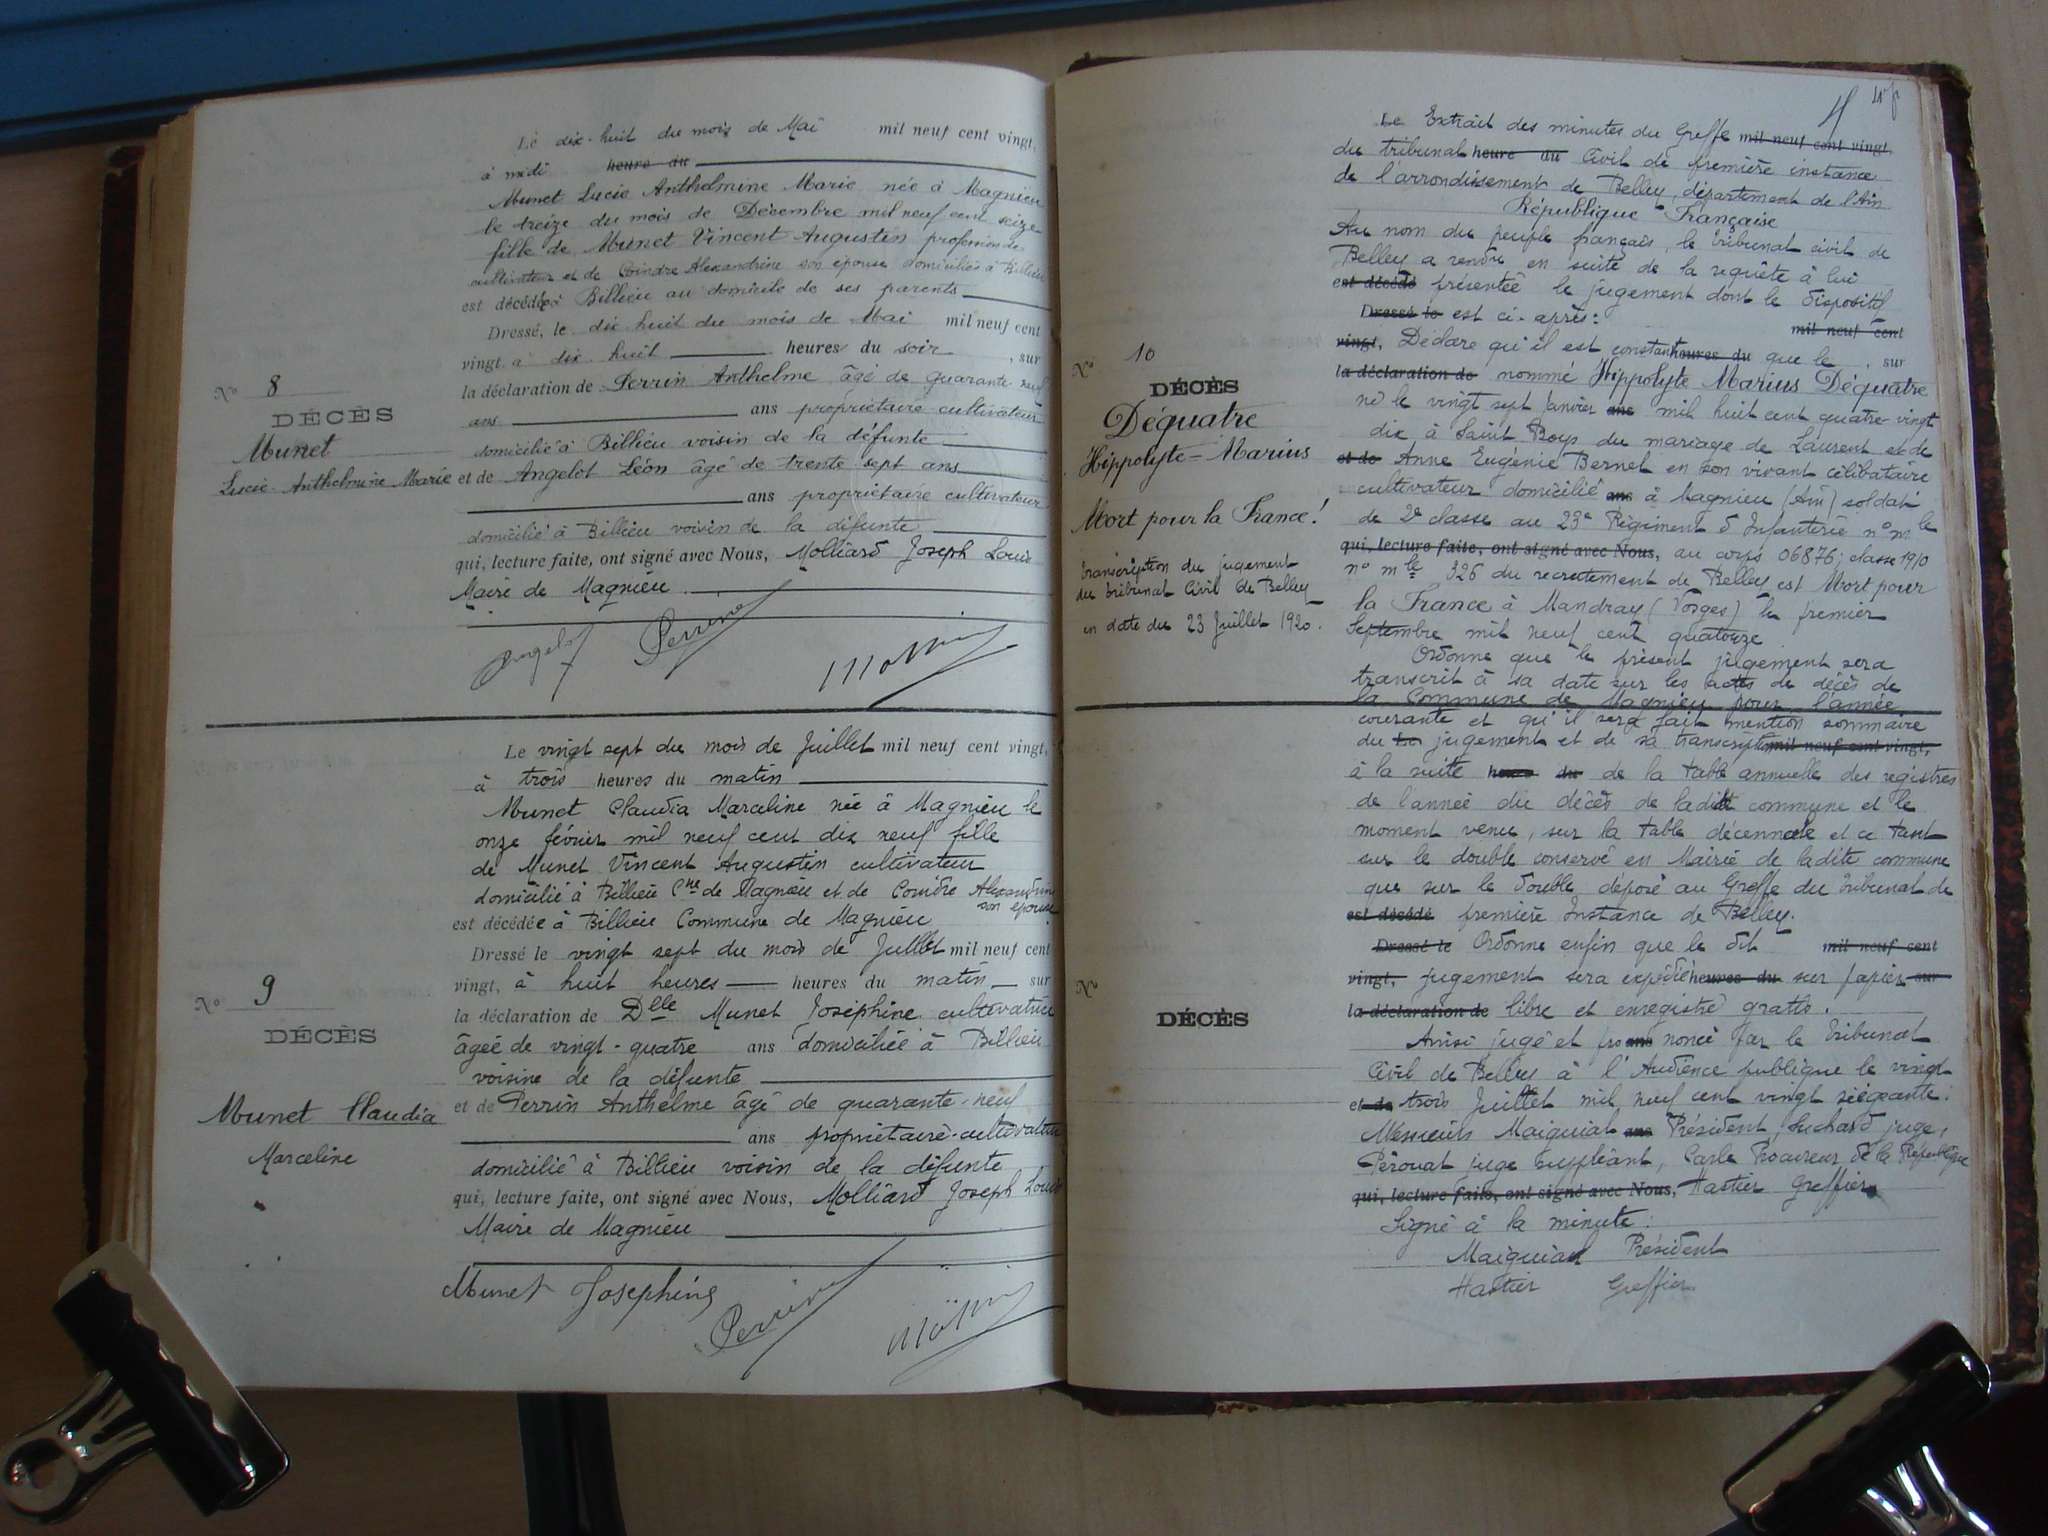 Le dix-huit du mois de Mai mil neuf cent vingt,
à midi heure du
Munet Lucie Anthelmine Marie née à Magnieu
le treize du mois de Décembre mil neuf cent seize
fille de Munet Vincent Augustin profession de
cultivateur et de Coindre Alexandrine son épouse domiciliés à Billieu
est décédée à Billieu au domicile de ses parents
Dressé, le dix-huit du mois de Mai mil neuf cent
vingt à dix-huit heures du soir, sur
la déclaration de Perrin Anthelme âgé de quarante-neuf
ans ans propriétaire cultivateur
domicilié à Billieu voisin de la défunte
et de Angelot Léon âgé de trente sept ans
ans propriétaire cultivateur
domicilié à Billieu voisin de la défunte
qui, lecture faite, ont signé avec Nous, Molliard Joseph Louis
Maire de Magnieu
Angelot Perrin
No 8
DÉCÈS
Munet
Lucie Anthelmine Marie
Le vingt sept du mois de Juillet mil neuf cent vingt,
à trois heures du matin
Munet Claudia Marceline née à Magnieu le
onze février mil neuf cent dix neuf fille
de Munet Vincent Augustin cultivateur
domicilié à Billieu Cne de Magnieu et de Coindre Alexandrine
son épouse
est décédée à Billieu Commune de Magnieu
Dressé le vingt sept du mois de Juillet mil neuf cent
vingt, à huit heures heures du matin sur
la déclaration de Dlle Munet Joséphine cultivatrice
âgée de vingt-quatre ans domiciliée à Billieu
voisine de la défunte
et de Perrin Anthelme âgé de quarante-neuf
ans propriétaire-cultivateur
domicilié à Billieu voisin de la défunte
qui, lecture faite, ont signé avec Nous, Molliard Joseph Louis
Maire de Magnieu
Munet Joséphine
Perrin
No 9
DÉCÈS
Munet Claudia
Marceline
Le Extrait des minutes du Greffe mil neuf cent vingt,
du tribunal heure du Civil de première instance
de l'arrondissement de Belley, département de l'Ain
République Française
Au nom du peuple français, le tribunal civil de
Belley a rendu en suite de la requête à lui
est décédé présentée le jugement dont le dispositif
Dressé le est ci-après: mil neuf cent
vingt, Déclare qu'il est constant heures du que le, sur
la déclaration de nommé Hippolyte Marius Déquatre
né le vingt sept Janvier ans mil huit cent quatre-vingt
dix à Saint Boys du mariage de Laurent et de
et de Anne Eugénie Bernet en son vivant célibataire
cultivateur domicilié ans à Magnieu (Ain) soldat
de 2e classe au 23e Régiment d'Infanterie n° mle
qui, lecture faite, ont signé avec Nous, au corps 06876; classe 1910
n° mle 326 du recrutement de Belley est Mort pour
la France à Mandray (Vosges) le premier
Septembre mil neuf cent quatorze
Ordonne que le présent jugement sera
transcrit à sa date sur les actes de décès de
la Commune de Magnieu pour l'année
courante et qu'il sera fait mention sommaire
du Le jugement et de sa transcription mil neuf cent vingt,
à la suite heure du de la table annuelle des registres
de l'année du décès de ladite commune et le
moment venu, sur la table décennale et ce tant
sur le double conservé en Mairie de ladite commune
que sur le double déposé au Greffe du Tribunal de
est décédé première Instance de Belley.
Dressé le Ordonne enfin que le dit mil neuf cent
vingt, jugement sera expédié heures du sur papier sur
la déclaration de libre et enregistré gratis.
Ainsi jugé et pro ans noncé par le Tribunal
Civil de Belley à l'Audience publique le vingt
et de trois Juillet mil neuf cent vingt siégeant:
Messieurs Maiguiat ans Président, Luchard juge,
Pérouat juge suppléant, Carle Procureur de la République
qui, lecture faite, ont signé avec Nous, Hastier Greffier
Signé à la minute:
Maiguiat Président
Hastier Greffier
No 10
DÉCÈS
Déquatre
Hippolyte-Marius
Mort pour la France!
transcription du jugement
du tribunal Civil de Belley
en date du 23 Juillet 1920.
No
DÉCÈS